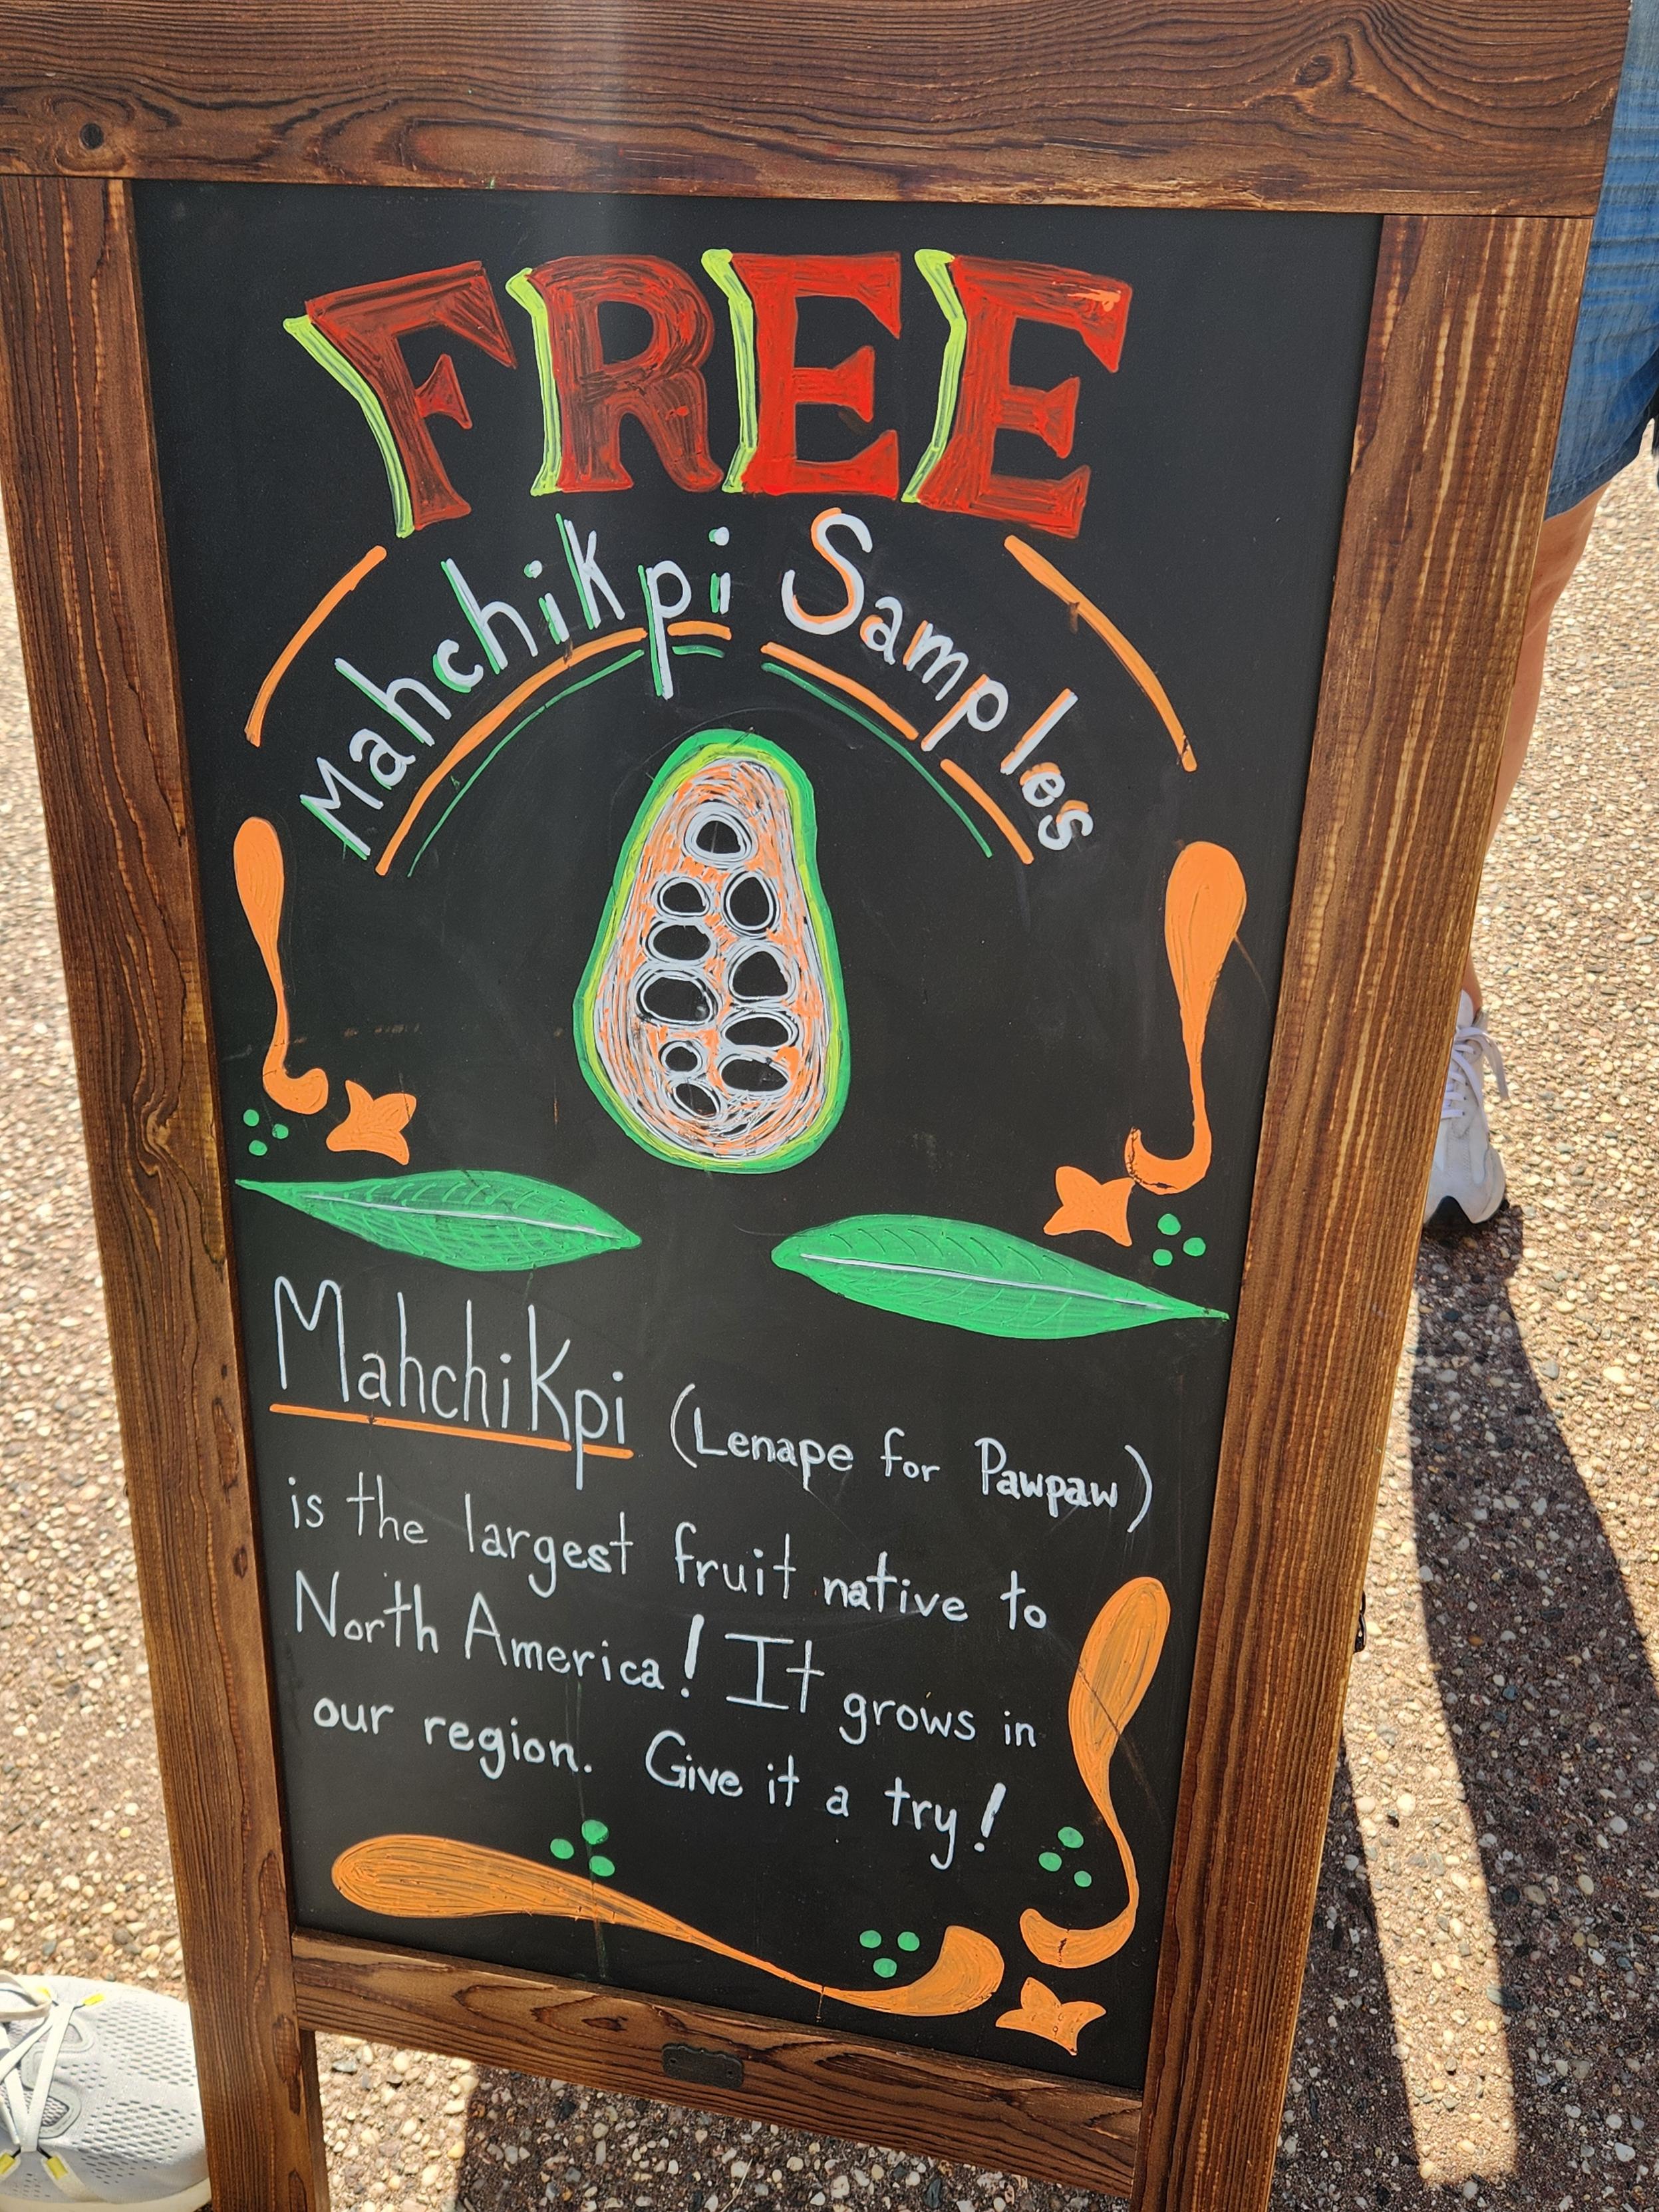 FREE
Mahchikpi Samples
Mahchikpi (Lenape for Pawpaw)
is the largest fruit native to
North America! It grows in
our region. Give it a try!